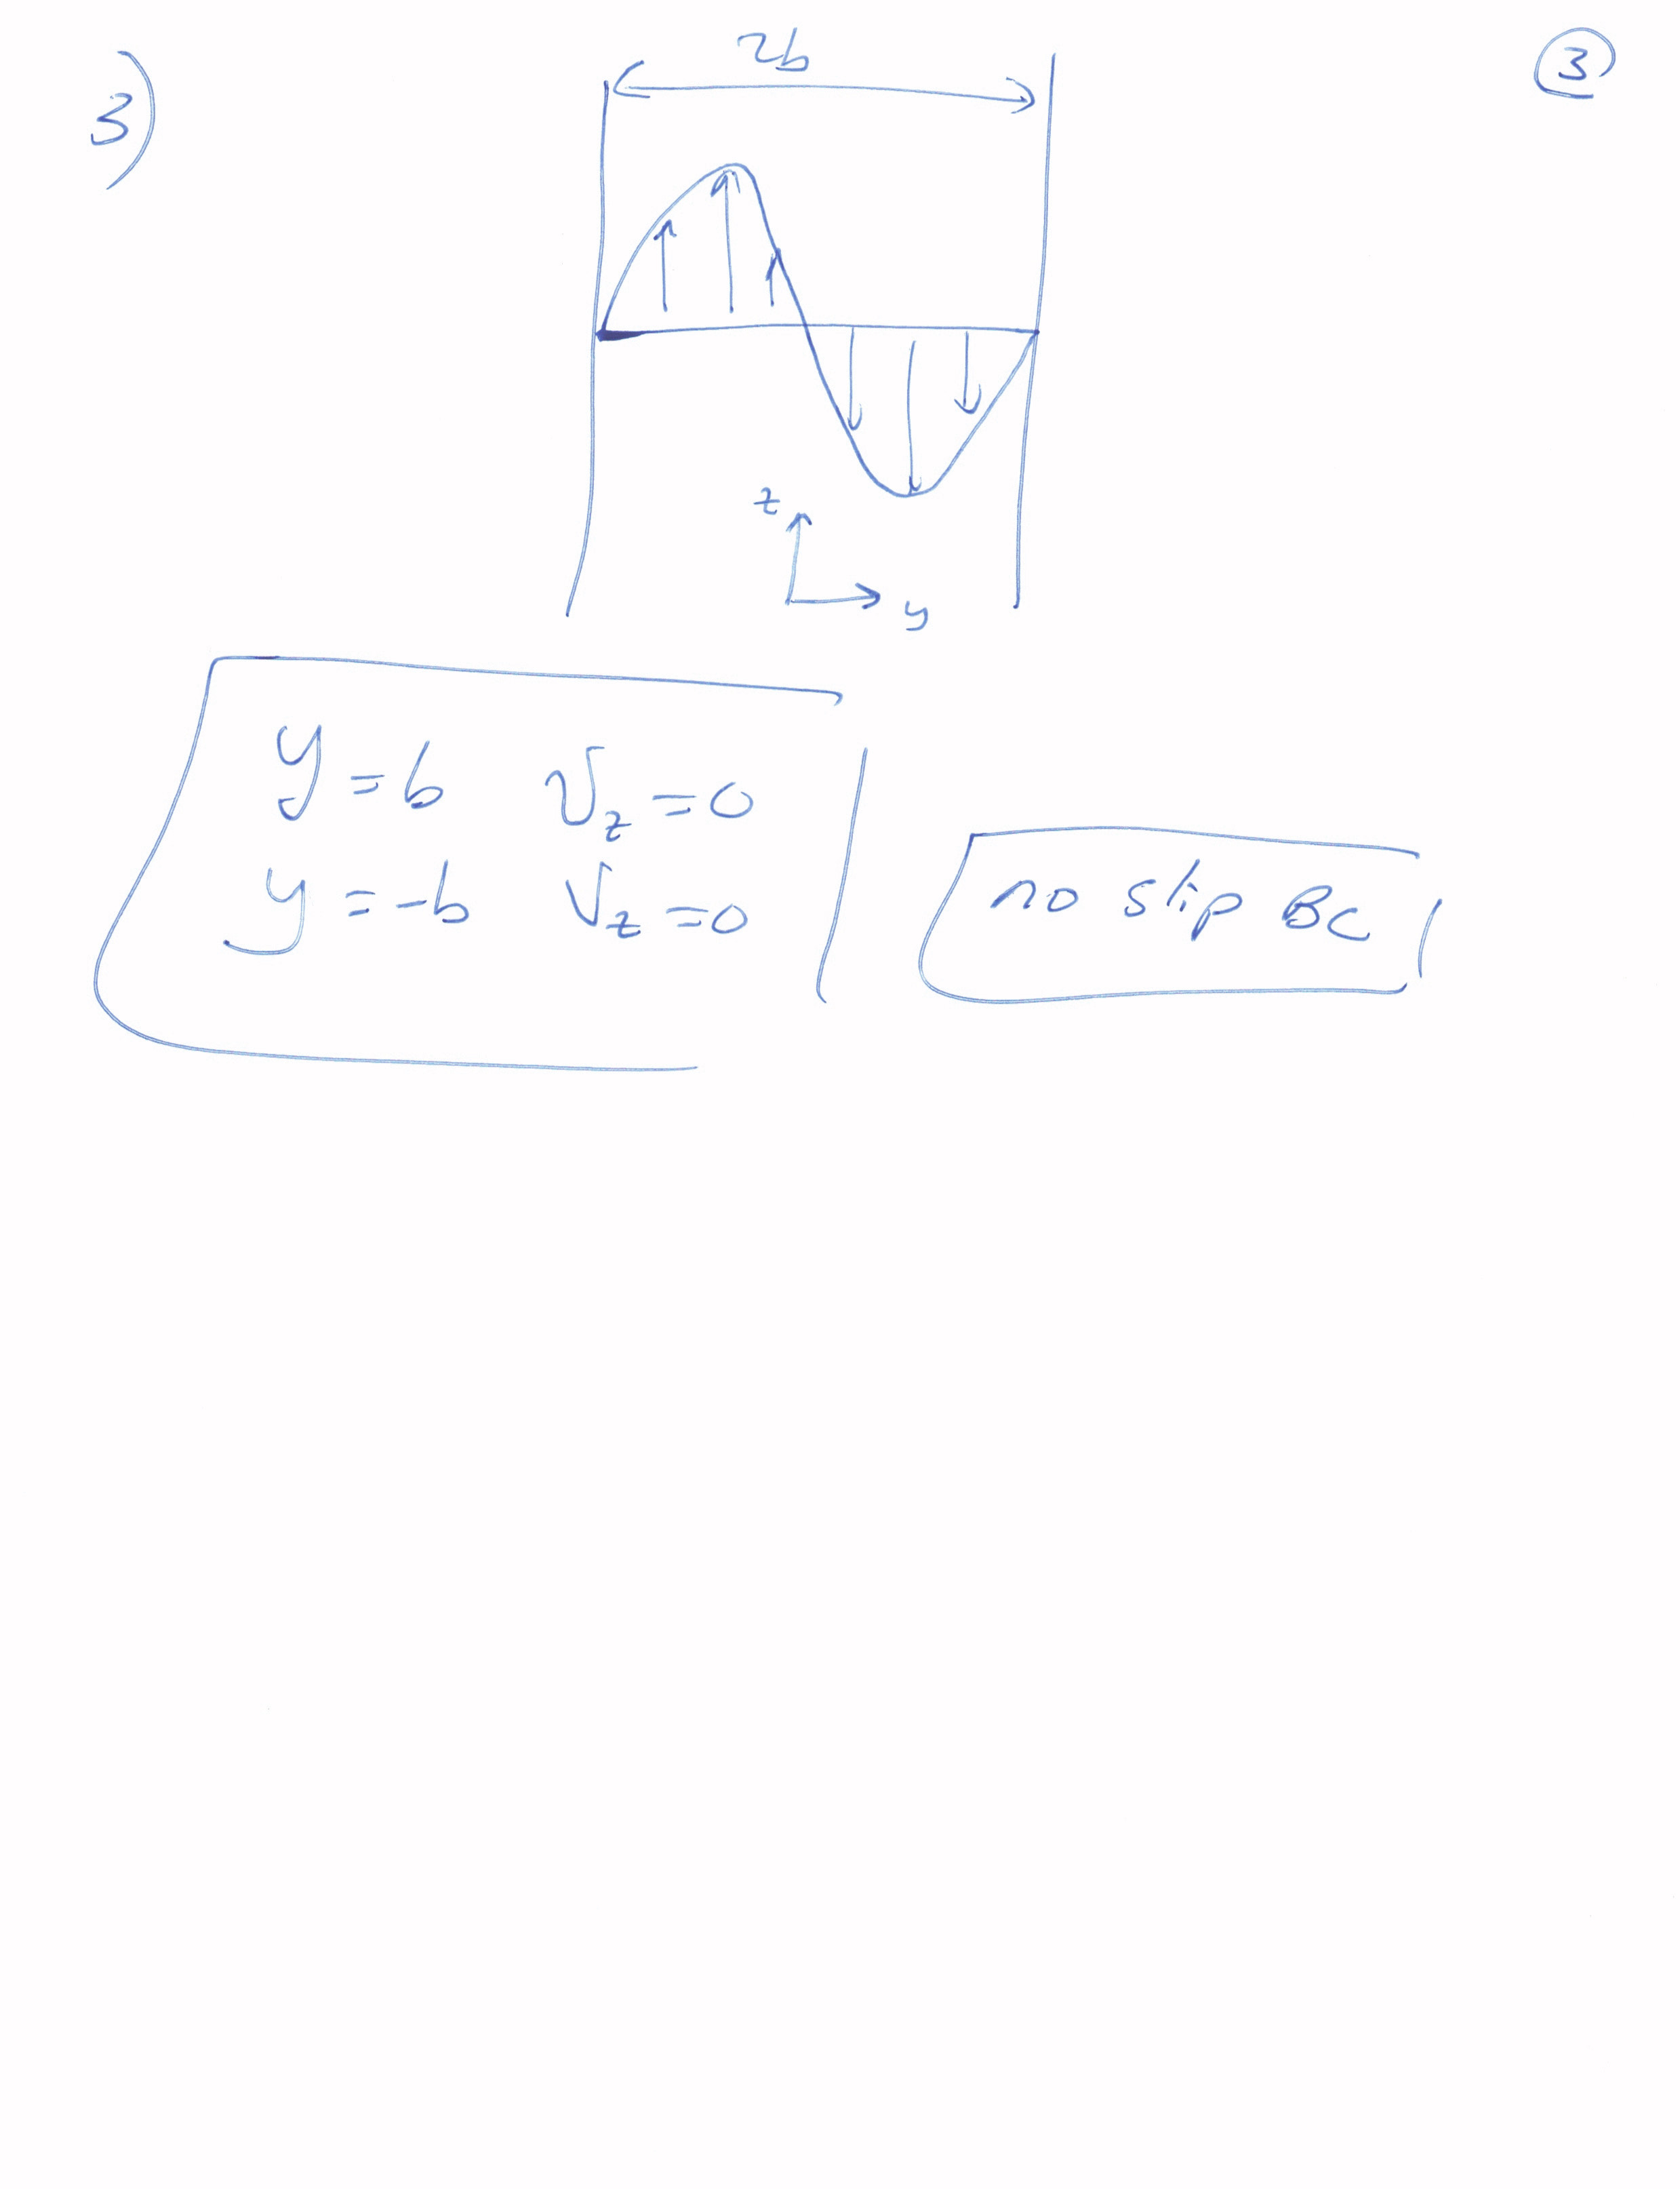 3)
③
2b
z
y
y = b v_z = 0
y = -b v_z = 0
no slip BC